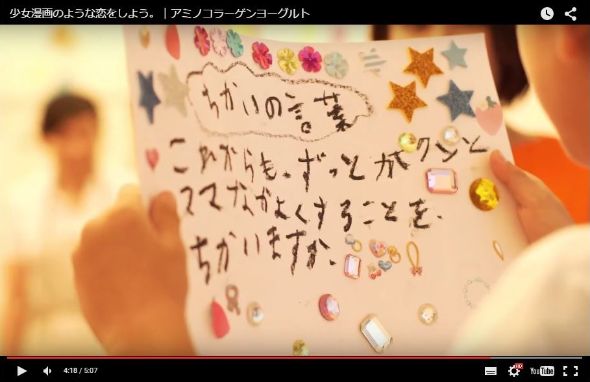 少女漫画のような恋をしよう。｜アミノコラーゲンヨーグルト
ちかいの言葉
これからも、ずっとガクンと
ママなかよくすることを、
ちかいますか。
4:18 / 5:07
HD
YouTube